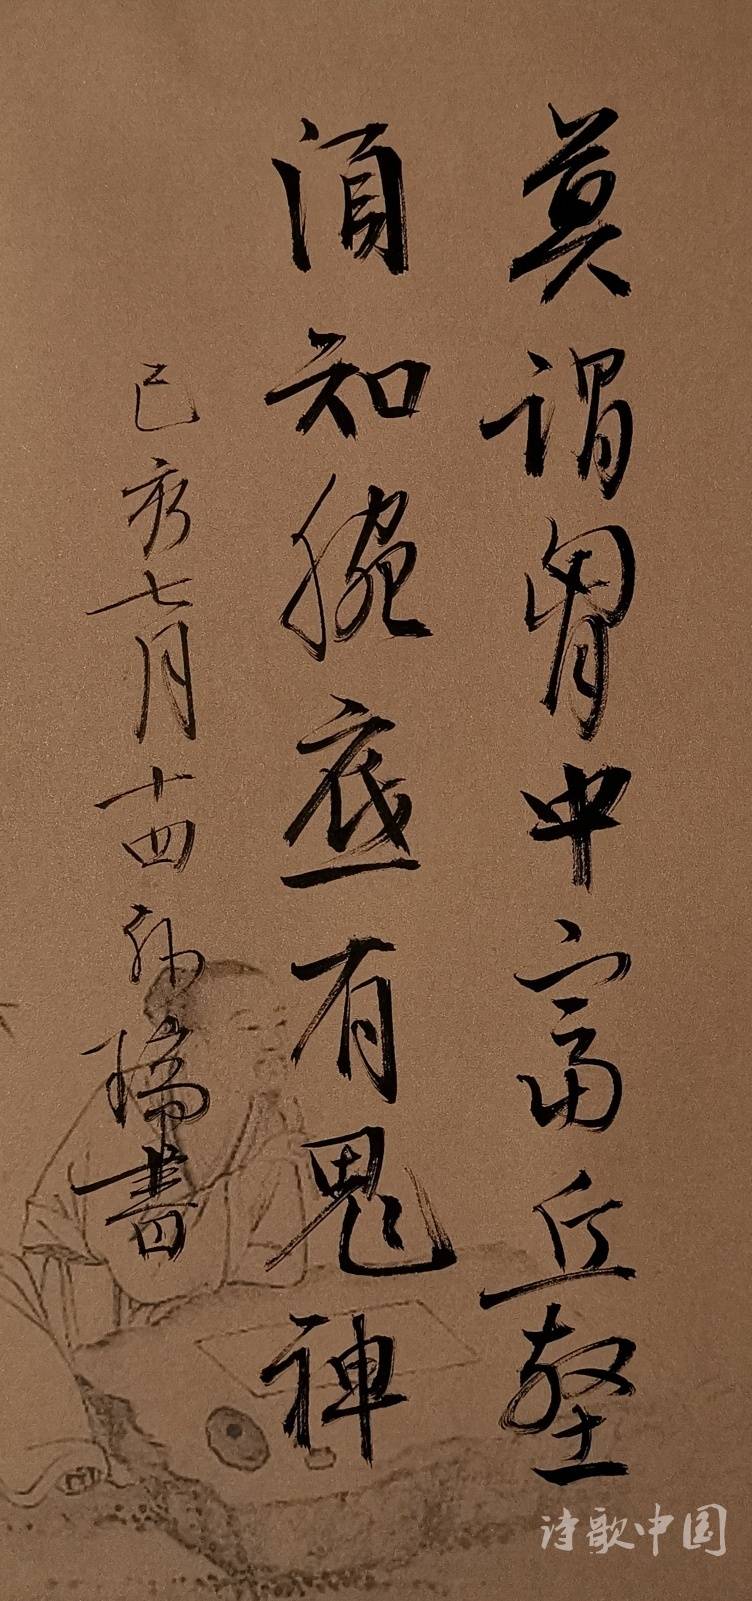 莫谓胷中富丘壑
须知腕底有鬼神
己亥七月十四 孙瑞书
诗歌中国